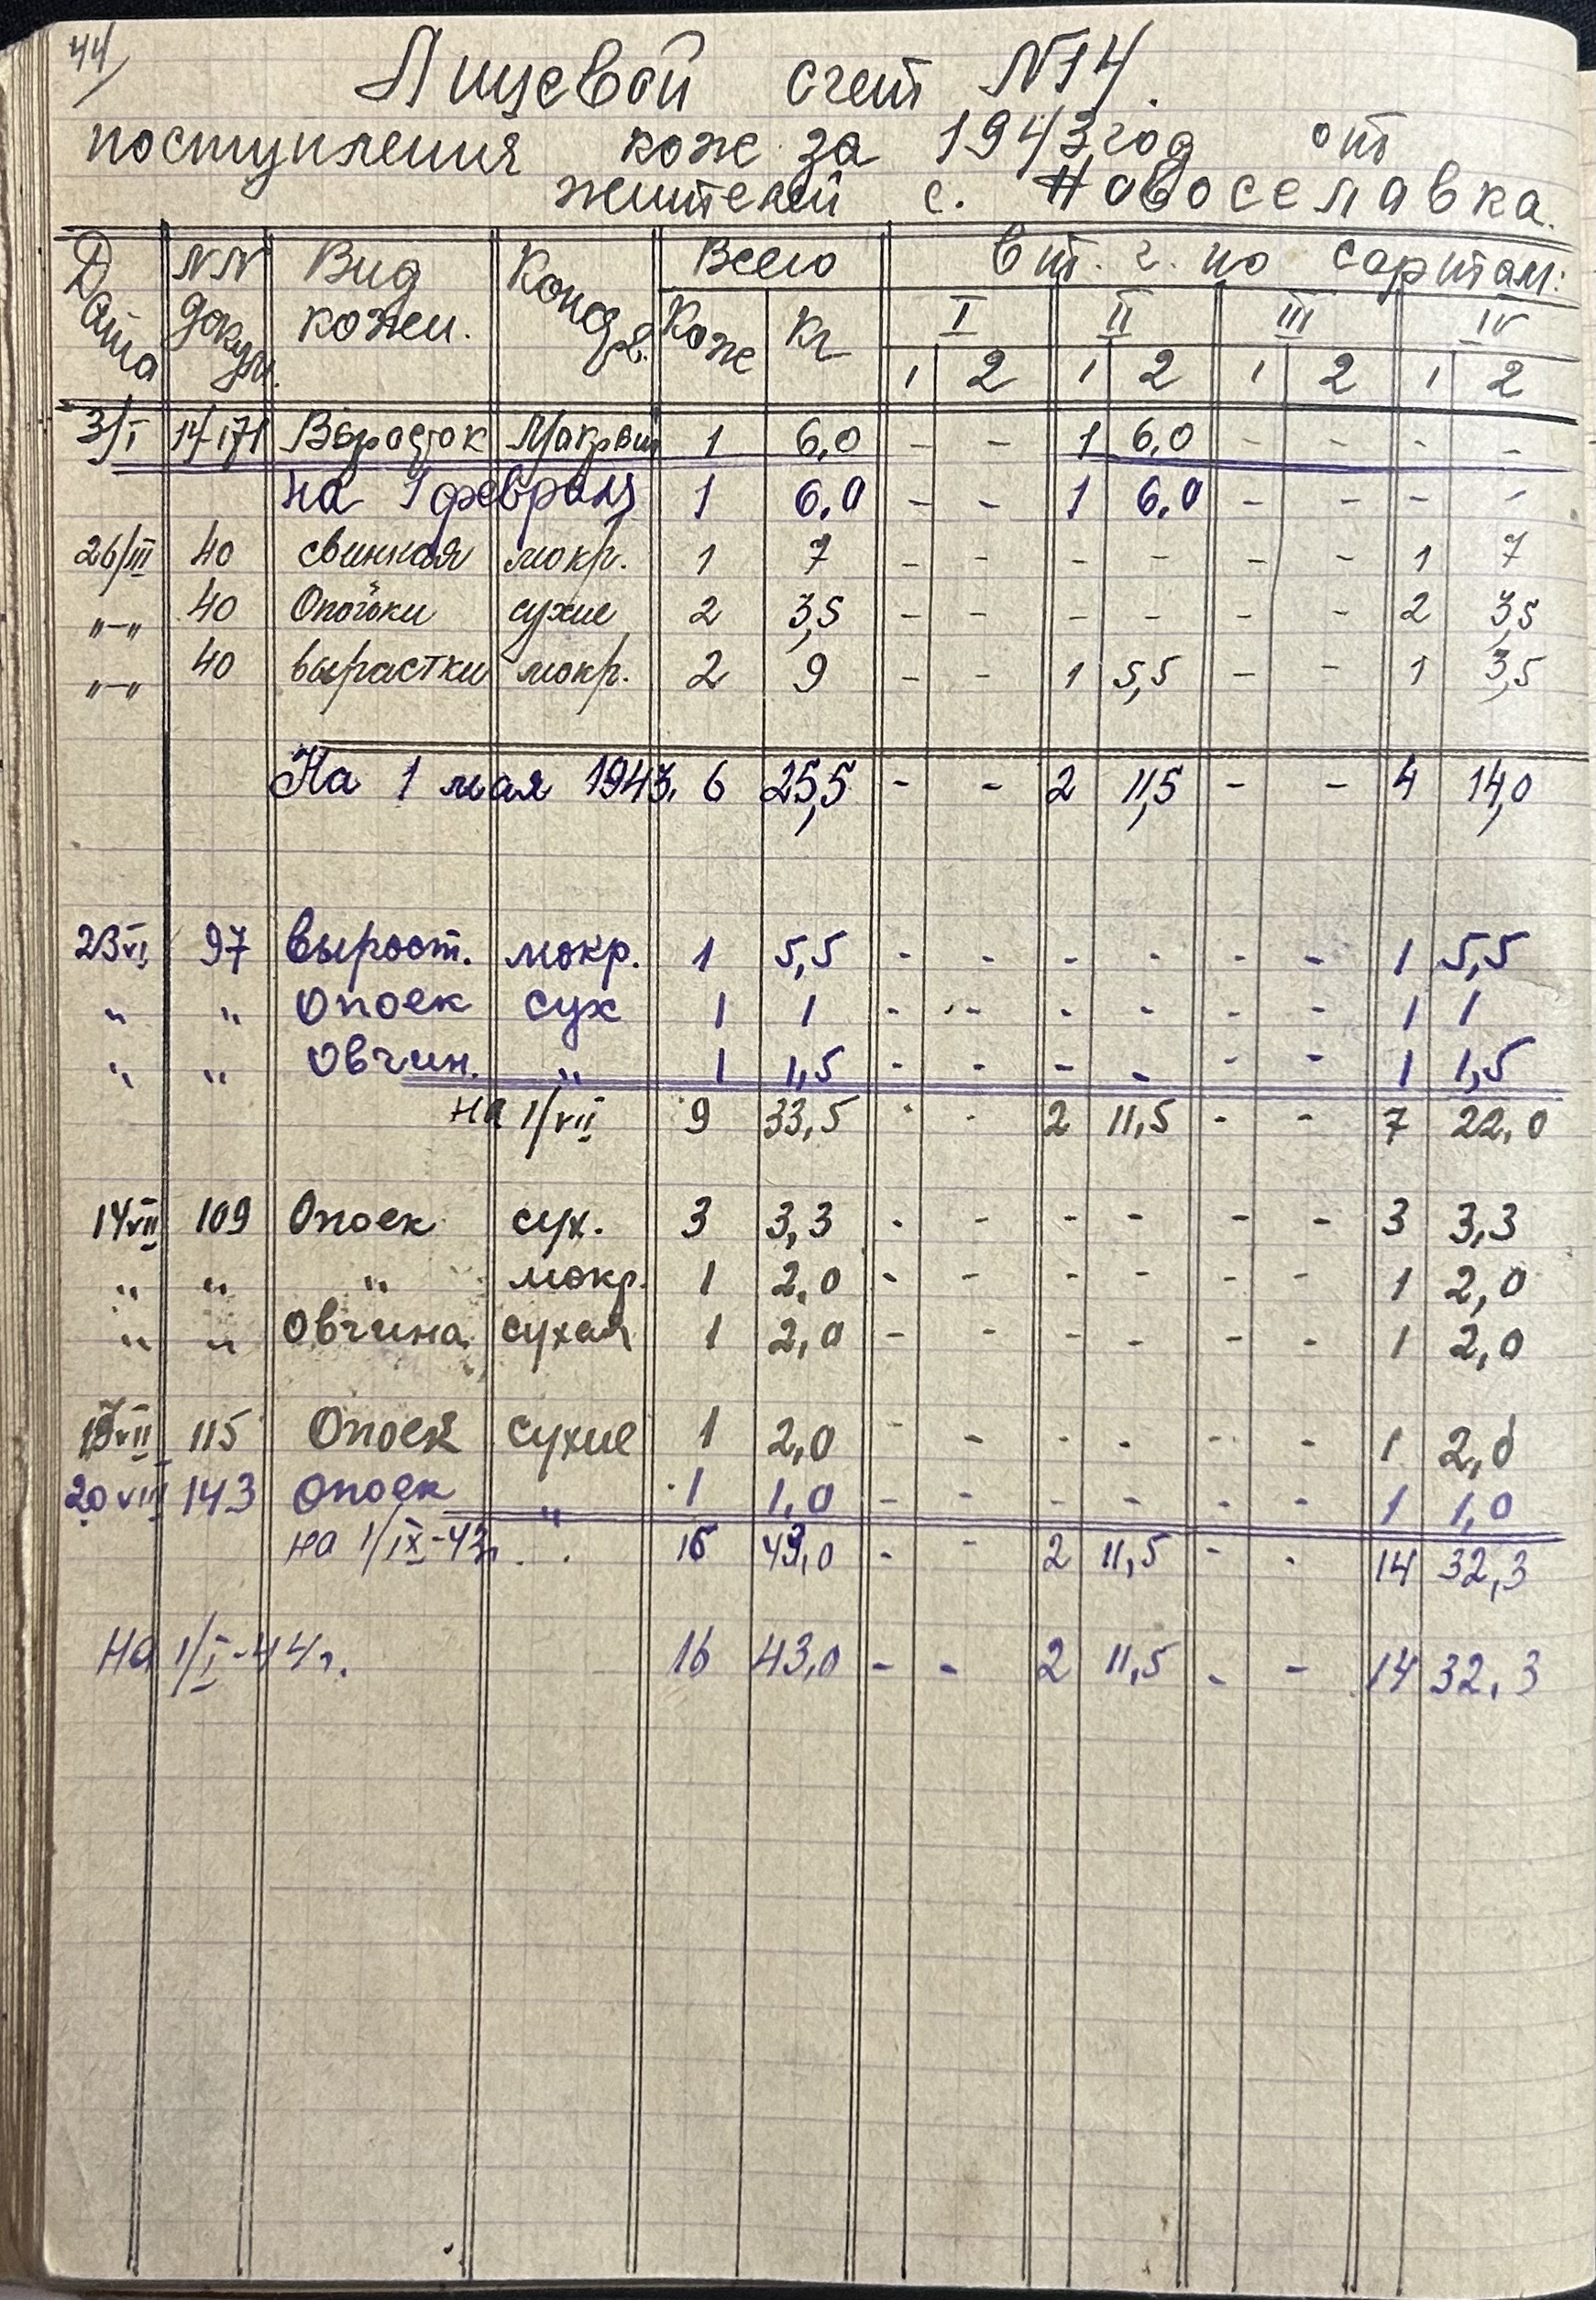 44/
Лицевой счет N14.
поступления кож за 1943 год от
жителей с. Новоселавка.
Дата NN докум. Вид кожи. Кондиц. Всего в т. ч. по сортам:
Кож Кг I II III IV
1 2 1 2 1 2 1 2
3/I 14/171 Выросток Мокрый 1 6,0 - - 1 6,0 - - - -
на 1 февраля 1 6,0 - - 1 6,0 - - - -
26/III 40 свинная мокр. 1 7 - - - - - - 1 7
"-" 40 Опойки сухие 2 3,5 - - - - - - 2 3,5
"-" 40 вырастки мокр. 2 9 - - 1 5,5 - - 1 3,5
На 1 мая 1943. 6 25,5 - - 2 11,5 - - 4 14,0
23 VI 97 Вырост. мокр. 1 5,5 - - - - - - 1 5,5
" " Опоек сух 1 1 - - - - - - 1 1
" " Овчин. " 1 1,5 - - - - - - 1 1,5
на 1/VII 9 33,5 - - 2 11,5 - - 7 22,0
14 VII 109 Опоек сух. 3 3,3 - - - - - - 3 3,3
" " " мокр. 1 2,0 - - - - - - 1 2,0
" " Овчина сухая 1 2,0 - - - - - - 1 2,0
VII 115 Опоек сухие 1 2,0 - - - - - - 1 2,0
20 VIII 143 Опоек " 1 1,0 - - - - - - 1 1,0
на 1/IX-43г. . 16 43,0 - - 2 11,5 - - 14 32,3
На 1/I-44г. 16 43,0 - - 2 11,5 - - 14 32,3